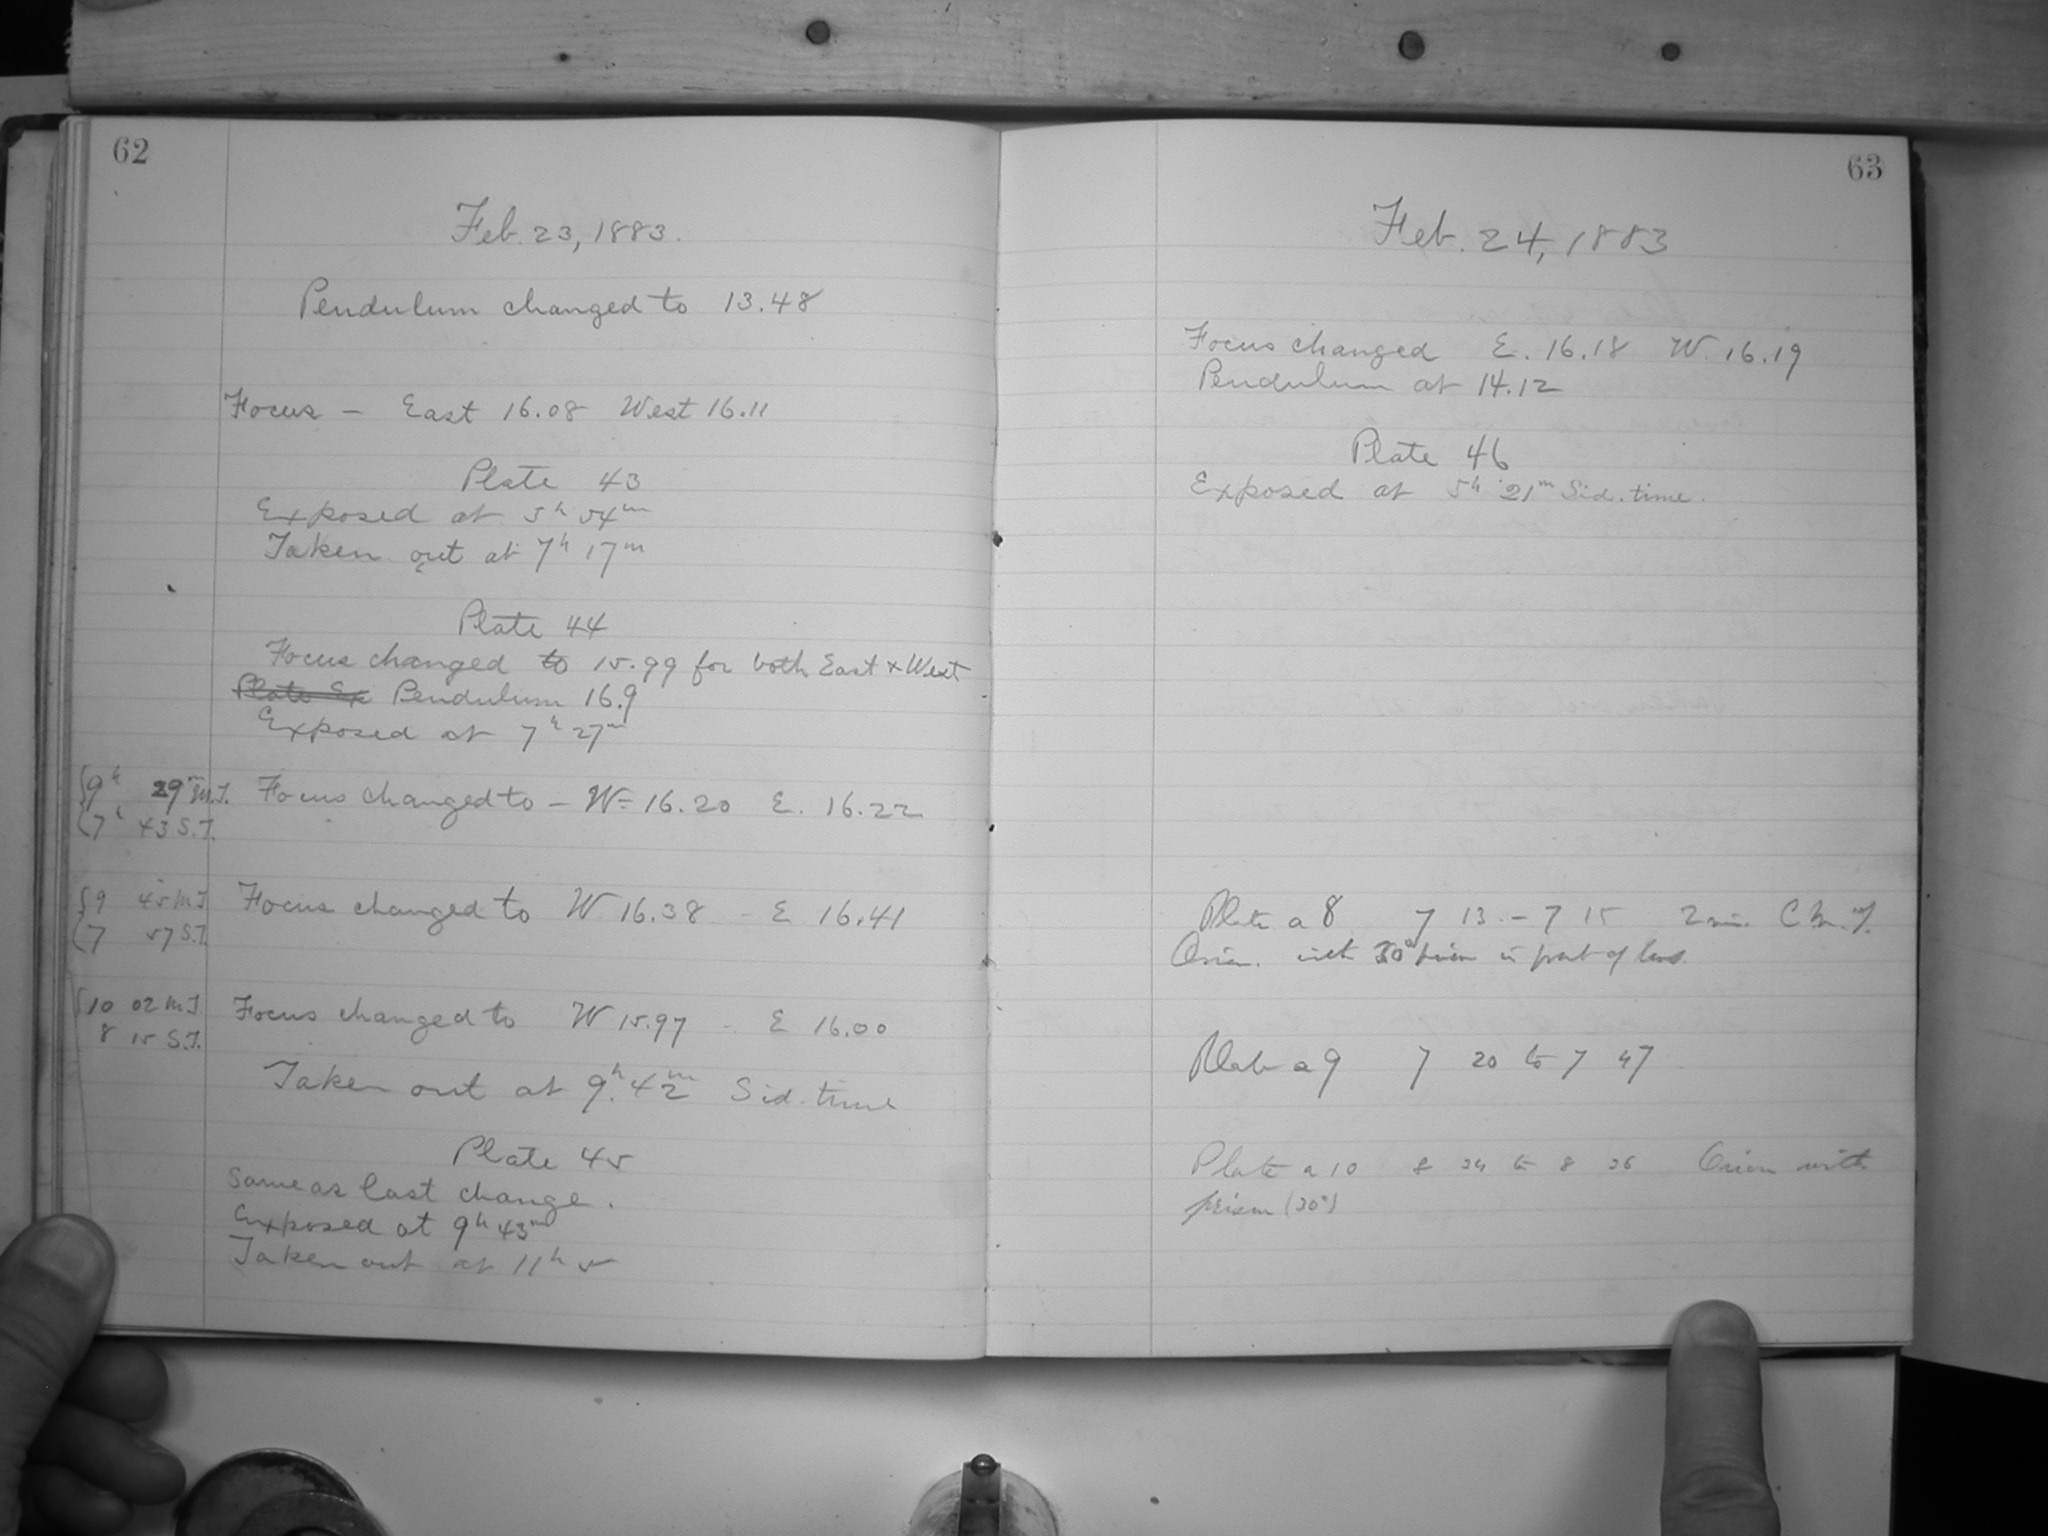 62
Feb. 23, 1883.
Pendulum changed to 13.48
Focus – East 16.08 West 16.11
Plate 43
Exposed at 5h 54m
Taken out at 7h 17m
Plate 44
Focus changed to 15.99 for both East & West
Plate Ex Pendulum 16.9
Exposed at 7h 27m
{9h 29m M.T. Focus changed to – W = 16.20 E. 16.22
{7h 43 S.T.
{9 45 M.T. Focus changed to W 16.38 - E 16.41
{7 57 S.T.
{10 02 M.T. Focus changed to W 15.97 - E 16.00
8 15 S.T.
Taken out at 9h. 42m Sid. time
Plate 45
Same as last change.
Exposed at 9h 43m
Taken out at 11h 5
63
Feb. 24, 1883
Focus changed E. 16.18 W. 16.19
Pendulum at 14.12
Plate 46
Exposed at 5h 21m Sid. time.
Plate a 8 7 13 – 7 15 2 min.
Orion. with 30° prism in front of lens.
Plate a 9 7 20 to 7 47
Plate a 10 8 24 to 8 26 Orion with
prism (30°)